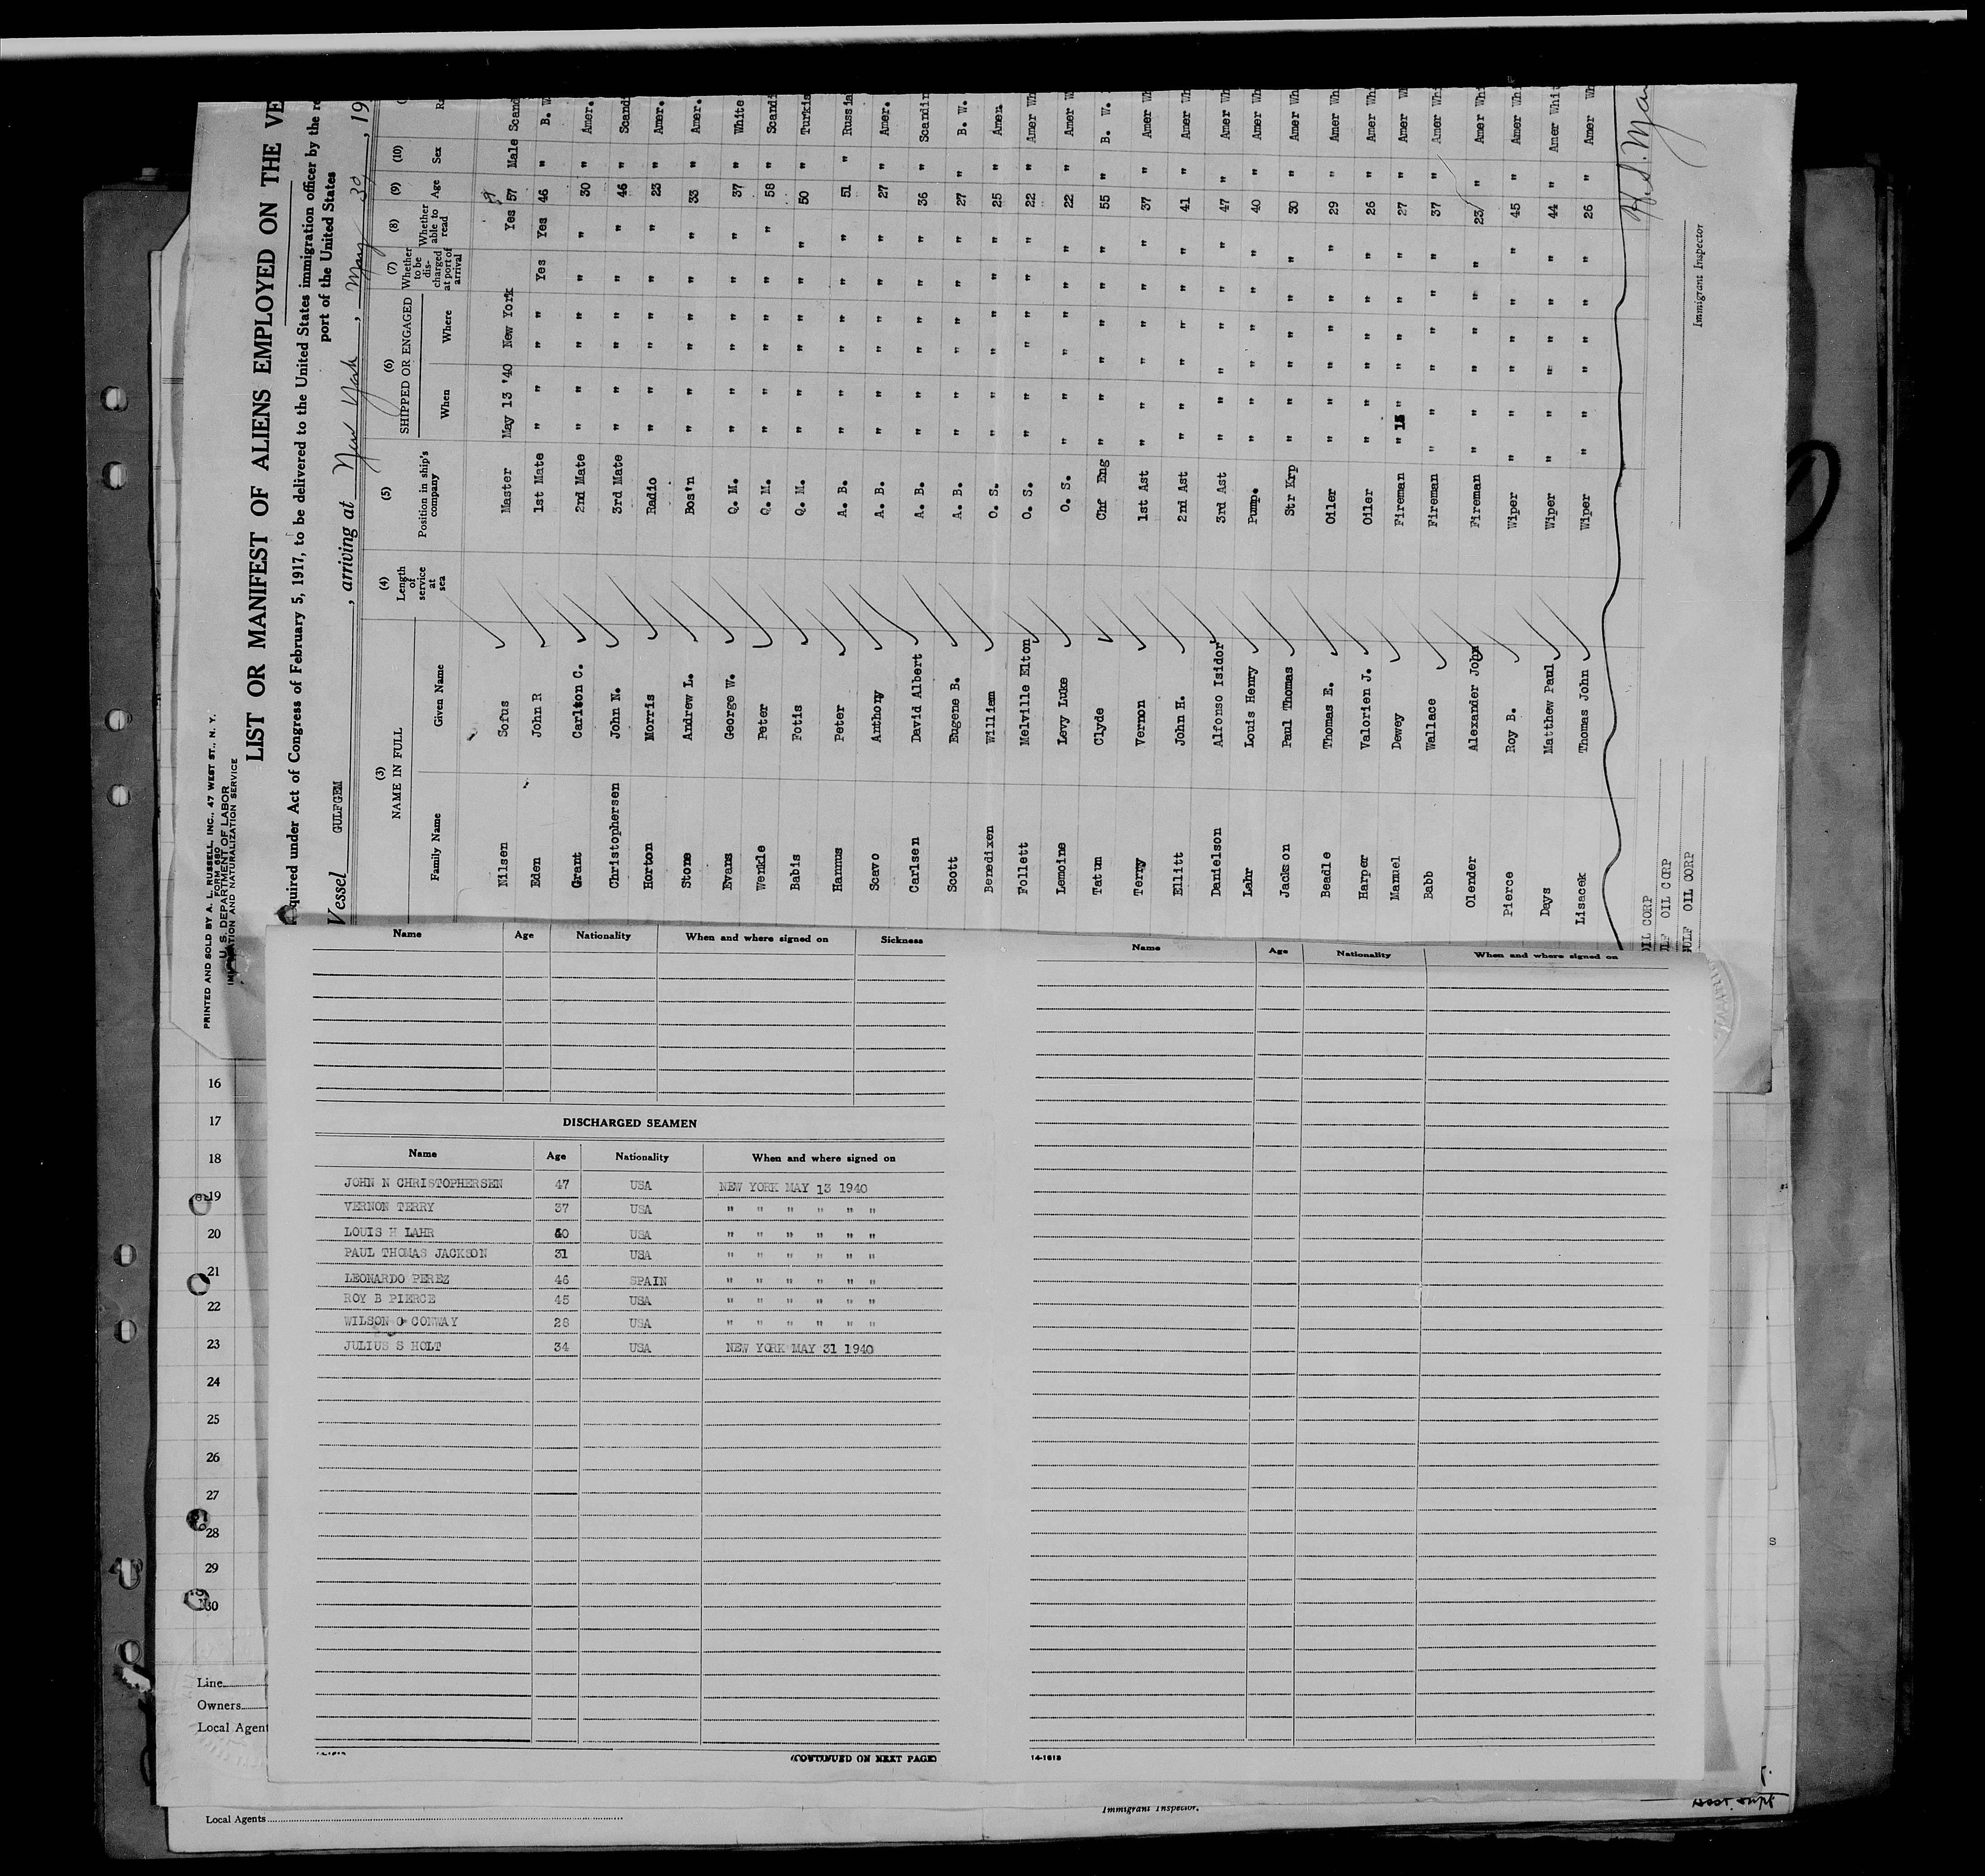 PRINTED AND SOLD BY A. L. RUSSELL, INC., 47 WEST ST., N. Y.
FORM 680
U. S. DEPARTMENT OF LABOR
IMMIGRATION AND NATURALIZATION SERVICE
LIST OR MANIFEST OF ALIENS EMPLOYED ON THE VE
quired under Act of Congress of February 5, 1917, to be delivered to the United States immigration officer by the re
port of the United States
Vessel GULFGEM , arriving at New York , May 30 , 19
(3) NAME IN FULL (4) Length of service at sea (5) Position in ship's company (6) SHIPPED OR ENGAGED (7) Whether to be discharged at port of arrival (8) Whether able to read (9) Age (10) Sex
Family Name Given Name When Where
Nilsen Sofus Master May 13 '40 New York Yes 57 Male Scand
Eden John R 1st Mate " " " " Yes Yes 46 " B. W.
Grant Carlton C. 2nd Mate " " " " " " 30 " Amer.
Christophersen John N. 3rd Mate " " " " " " 46 " Scandi
Horton Morris Radio " " " " " " 23 " Amer.
Stone Andrew L. Bos'n " " " " " " 33 " Amer.
Evans George W. Q. M. " " " " " " 37 " White
Wenkle Peter Q. M. " " " " " " 58 " Scandi
Babis Fotis Q. M. " " " " " " 50 " Turkis
Hannus Peter A. B. " " " " " " 51 " Russia
Scavo Anthony A. B. " " " " " " 27 " Amer.
Carlsen David Albert A. B. " " " " " " 36 " Scandin
Scott Eugene B. A. B. " " " " " " 27 " B. W.
Benedixen William O. S. " " " " " " 25 " Amen
Follett Melville Elton O. S. " " " " " " 22 " Amer Wh
Lemoine Levy Luke O. S. " " " " " " 22 " Amer W
Tatum Clyde Chf Eng " " " " " " 55 " B. W.
Terry Vernon 1st Ast " " " " " " 37 " Amer Wh
Ellitt John H. 2nd Ast " " " " " " 41 " Amer Wh
Danielson Alfonso Isidor 3rd Ast " " " " " " 47 " Amer Wh
Lahr Louis Henry Pump. " " " " " " 40 " Amer Wh
Jackson Paul Thomas Str Krp " " " " " " 30 " Amer Wh
Beadle Thomas E. Oiler " " " " " " 29 " Amer Wh
Harper Valorien J. Oiler " " " " " " 26 " Amer Whi
Manuel Dewey Fireman " 15 " " " " " 27 " Amer W
Babb Wallace Fireman " " " " " " 37 " Amer Whi
Olender Alexander John Fireman " " " " " " 23 " Amer Whi
Pierce Roy B. Wiper " " " " " " 45 " Amer Whi
Days Matthew Paul Wiper " " " " " " 44 " Amer Whit
Lisacek Thomas John Wiper " " " " " " 26 " Amer Wh
Immigrant Inspector
OIL CORP
LF OIL CORP
ULF OIL CORP
Name Age Nationality When and where signed on Sickness
DISCHARGED SEAMEN
Name Age Nationality When and where signed on
JOHN N CHRISTOPHERSEN 47 USA NEW YORK MAY 13 1940
VERNON TERRY 37 USA " " " " " "
LOUIS H LAHR 40 USA " " " " " "
PAUL THOMAS JACKSON 31 USA " " " " " "
LEONARDO PEREZ 46 SPAIN " " " " " "
ROY B PIERCE 45 USA " " " " " "
WILSON O CONWAY 28 USA " " " " " "
JULIUS S HOLT 34 USA NEW YORK MAY 31 1940
(CONTINUED ON NEXT PAGE)
Name Age Nationality When and where signed on
14-1618
16
17
18
19
20
21
22
23
24
25
26
27
28
29
30
Line
Owners
Local Agent
Local Agents
Immigrant Inspector.